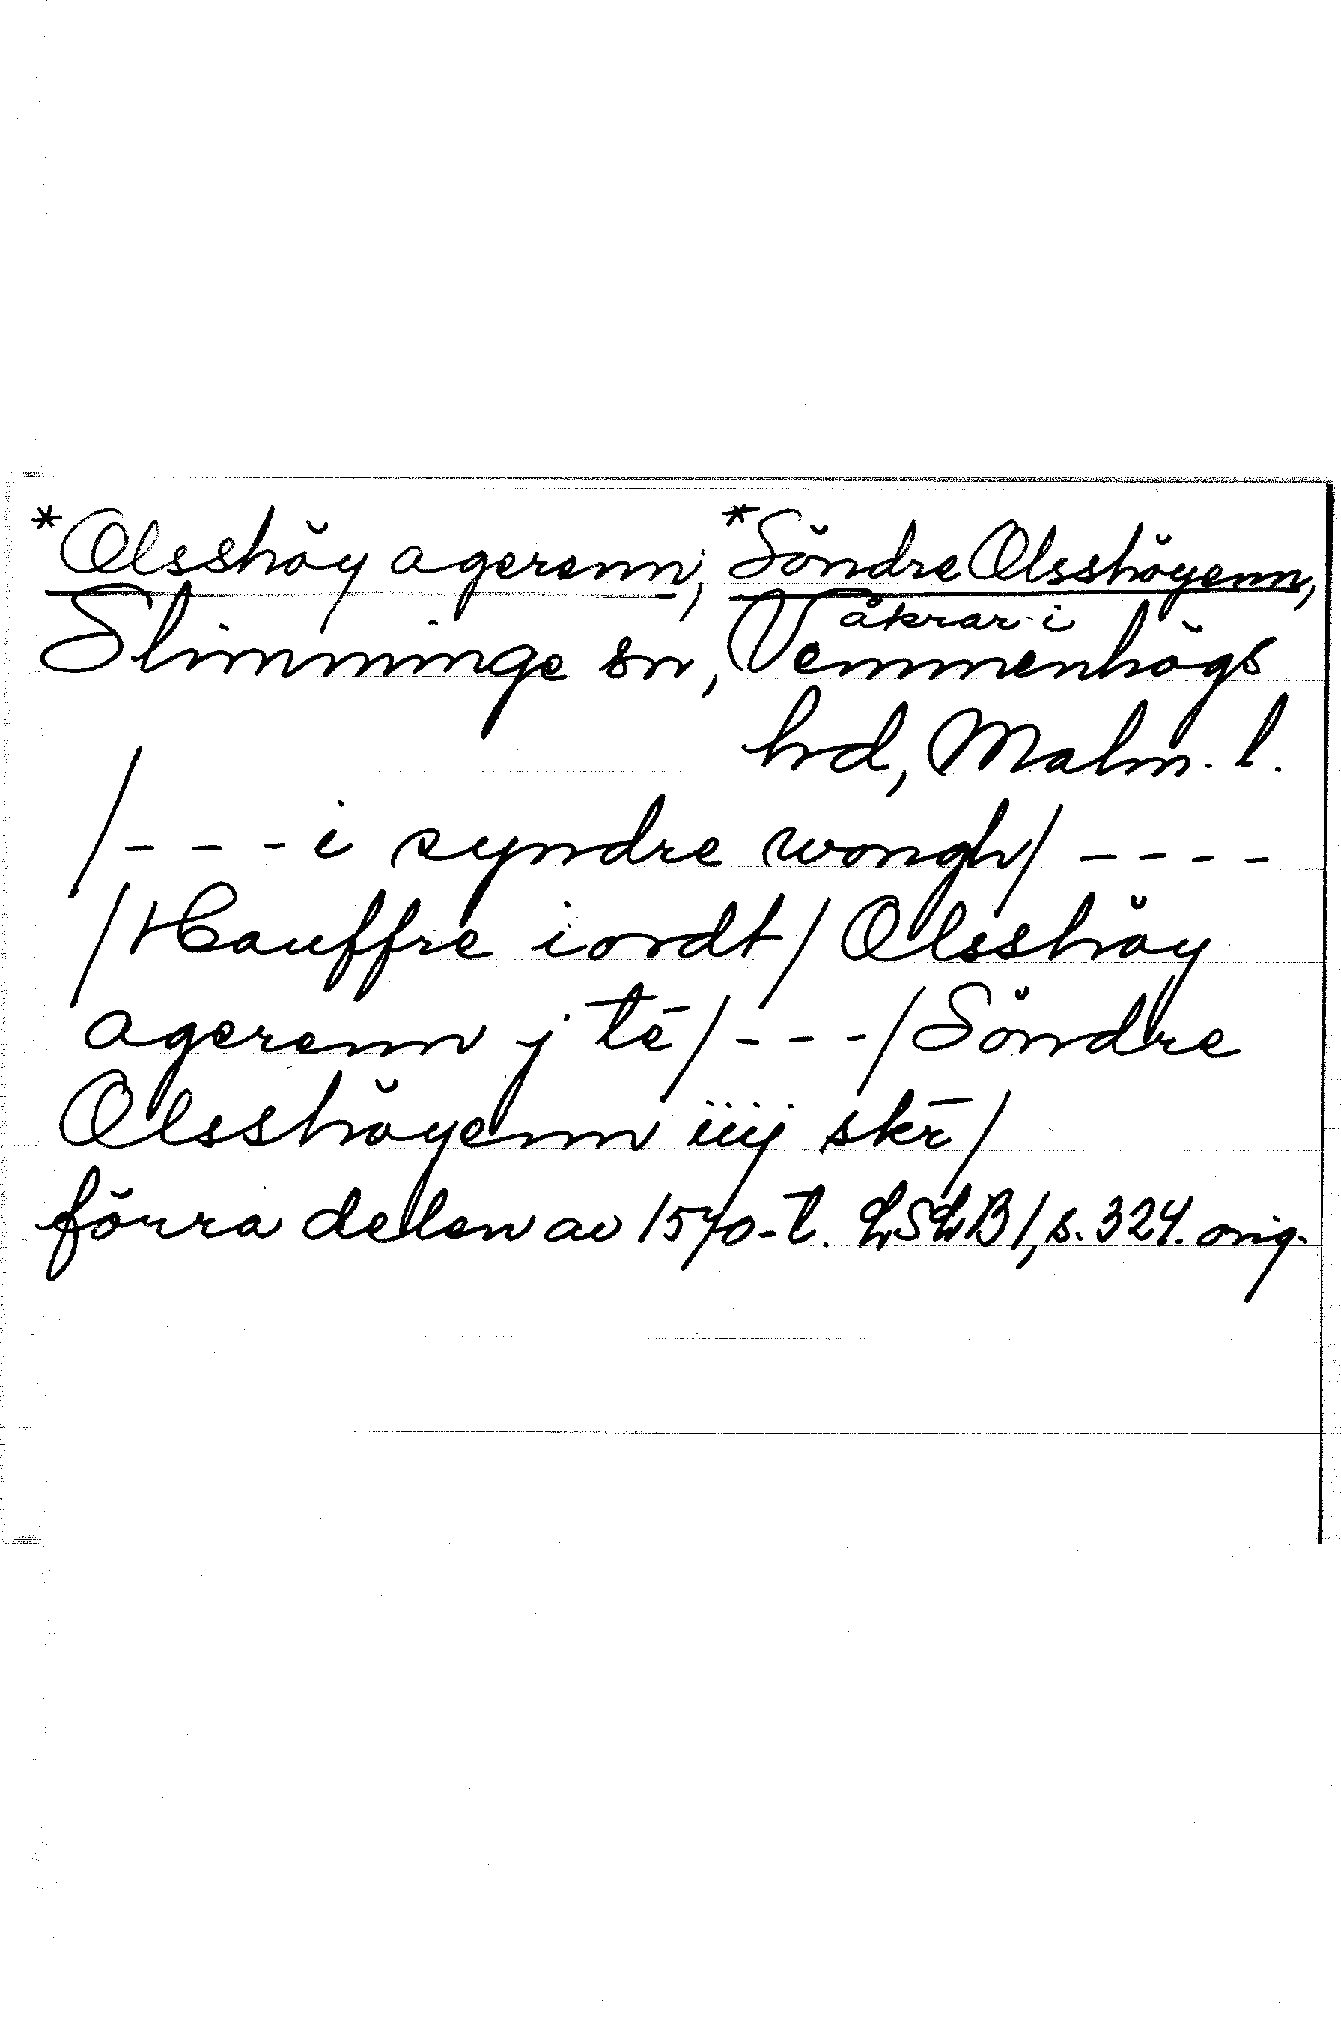 *Olsshöy agerenn, *Söndre Olsshöyenn,
åkrar i
Slimminge sn, Vemmenhögs
hd, Malm. l.
/- - - i syndre wongh/ - - - -
/Hauffre iordt/ Olsshöy
agerenn j tē/ - - - /Söndre
Olsshöyenn iiij skr̄/
förra delen av 1570-t. LSLB 1, s. 324. orig.